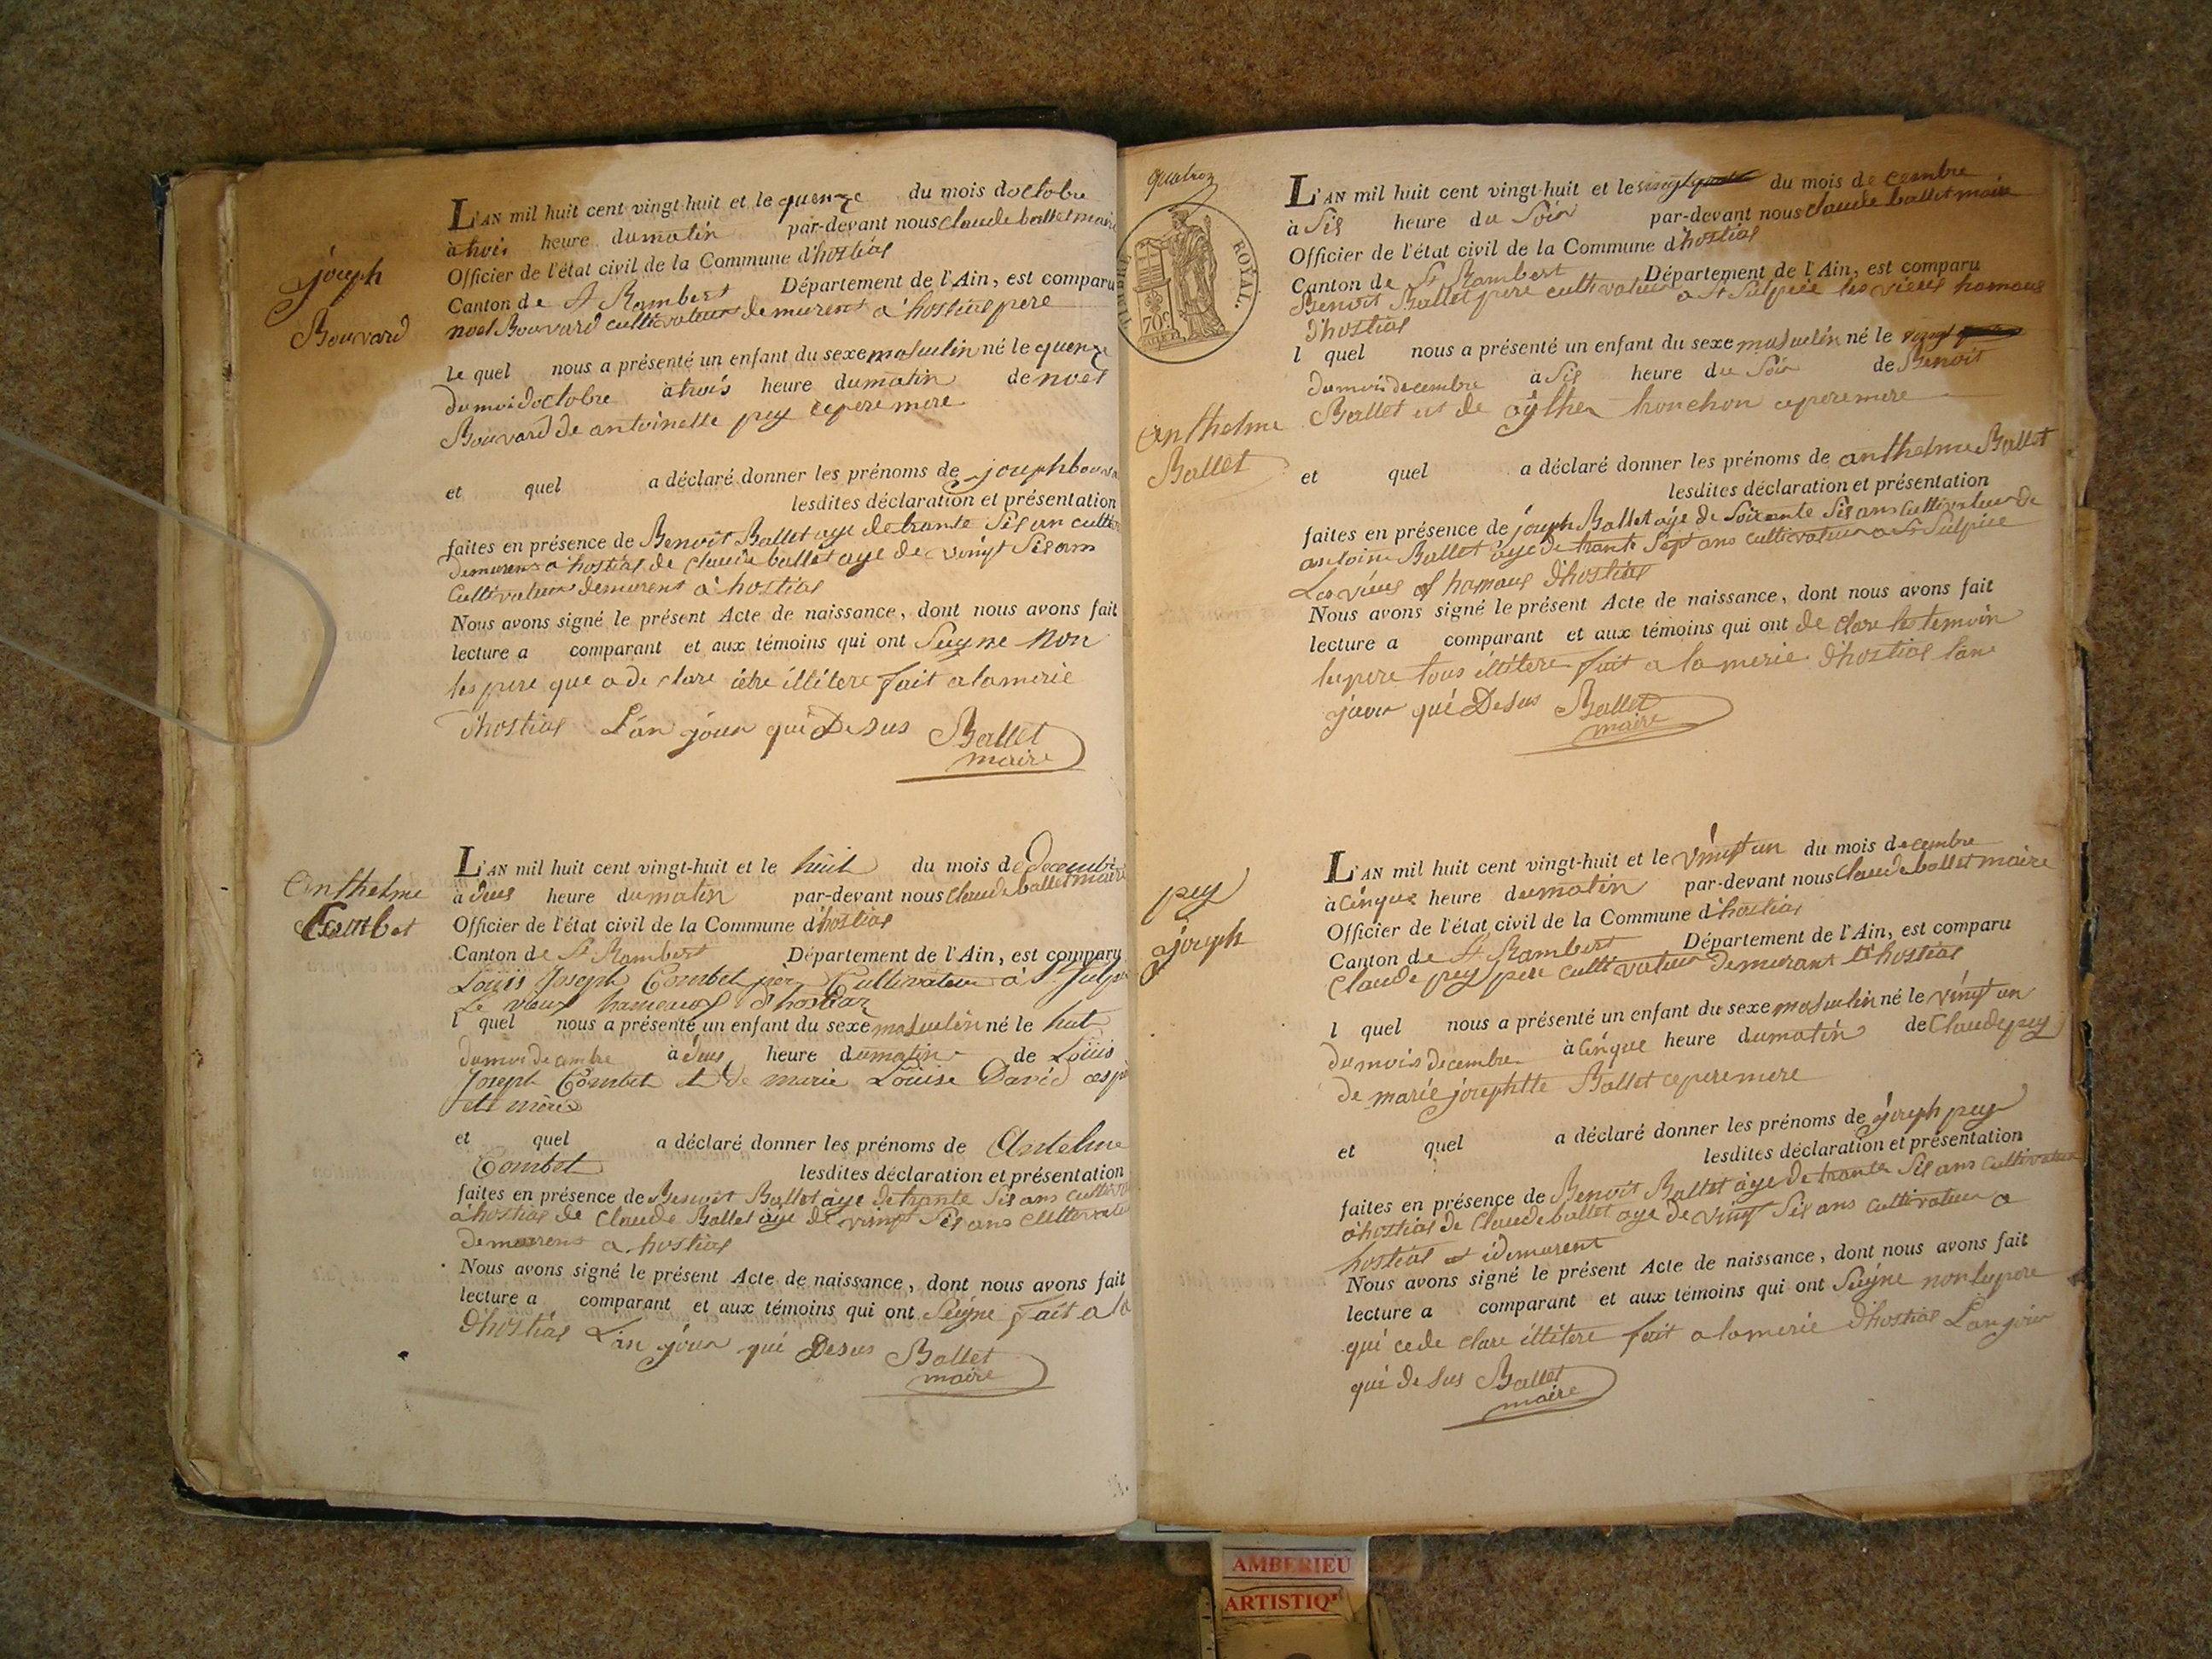 joseph
Bouvard
L'AN mil huit cent vingt-huit et le quenze du mois doctobre
à trois heure du matin par-devant nous Claude ballet maire
Officier de l'état civil de la Commune d'hostias
Canton de St Rambert Département de l'Ain, est comparu
noel Bouvard cultivateur demurent a hostias pere
le quel nous a présenté un enfant du sexe masculin né le quenze
du moi doctobre à trois heure du matin de noel
Bouvard de antoinette pey ce pere mere
et quel a déclaré donner les prénoms de joseph
lesdites déclaration et présentation
faites en présence de Benoit Ballet aye de trante Sis an
demurens a hostias de Claude ballet aye de vingt Sis ans
Cultivateur demurent a hostias
Nous avons signé le présent Acte de naissance, dont nous avons fait
lecture a comparant et aux témoins qui ont Seigne non
les pere que a de clare être illitere fait a la merie
d'hostias L'an jour qui Desus Ballet
maire
Anthelme
Combet
L'AN mil huit cent vingt-huit et le huit du mois de Decembre
à deus heure du matin par-devant nous Claude ballet maire
Officier de l'état civil de la Commune d'hostias
Canton de St Rambert Département de l'Ain, est comparu
Louis Joseph Combet père Cultivateur à St
Le vieux hameaux d'hostiaz
l quel nous a présenté un enfant du sexe masculin né le huit
du moi de cembre à deus heure du matin de Louis
Joseph Combet et de marie Louise David ces
et mère
et quel a déclaré donner les prénoms de Antelme
Combet lesdites déclaration et présentation
faites en présence de Benoit Ballet aye de trante Sis ans
a hostias de Claude Ballet aye de vingt Sis ans
demurens a hostias
Nous avons signé le présent Acte de naissance, dont nous avons fait
lecture a comparant et aux témoins qui ont Seigne fait a la
d'hostias L'an jour qui Desus Ballet
maire
quatroz
TIMBRE ROYAL.
70 c
Anthelme
Ballet
L'AN mil huit cent vingt-huit et le du mois de cembre
à Sis heure du Soir par-devant nous Claude ballet maire
Officier de l'état civil de la Commune d'hostias
Canton de St Rambert Département de l'Ain, est comparu
Benoit Ballet pere cultivateur a St Sulpice les vieus hamaus
d'hostias
l quel nous a présenté un enfant du sexe masculin né le vingt
du mois decembre à Sis heure du Soir de Benoit
Ballet et de tronchon ce pere mere
et quel a déclaré donner les prénoms de anthelme Ballet
lesdites déclaration et présentation
faites en présence de joseph Ballet aye de Soixante Sis ans Cultivateur de
antoine Ballet aye de trante Sept ans cultivateur a St Sulpice
Les vieus hamaus d'hostias
Nous avons signé le présent Acte de naissance, dont nous avons fait
lecture a comparant et aux témoins qui ont de clare les temoin
le pere tous illitere fait a la merie d'hostias lan
jour qui Desus Ballet
maire
pey
joseph
L'AN mil huit cent vingt-huit et le vingt un du mois decembre
à Cinque heure du matin par-devant nous Claude ballet maire
Officier de l'état civil de la Commune d'hostias
Canton de St Rambert Département de l'Ain, est comparu
Claude pey pere cultivateur demurant hostias
l quel nous a présenté un enfant du sexe masculin né le vingt un
du mois decembre à Cinque heure du matin de Claude pey
de marie josephtte Ballet ce pere mere
et quel a déclaré donner les prénoms de joseph pey
lesdites déclaration et présentation
faites en présence de Benoit Ballet aye de trante Sis ans cultivateur
a hostias de Claude ballet aye de vingt Sis ans cultivateur a
hostias demurent
Nous avons signé le présent Acte de naissance, dont nous avons fait
lecture a comparant et aux témoins qui ont Seigne non le pere
qui ce de clare illitere fait a la merie d'hostias L'an jour
qui de sus Ballet
maire
AMBERIEU
ARTISTIQ